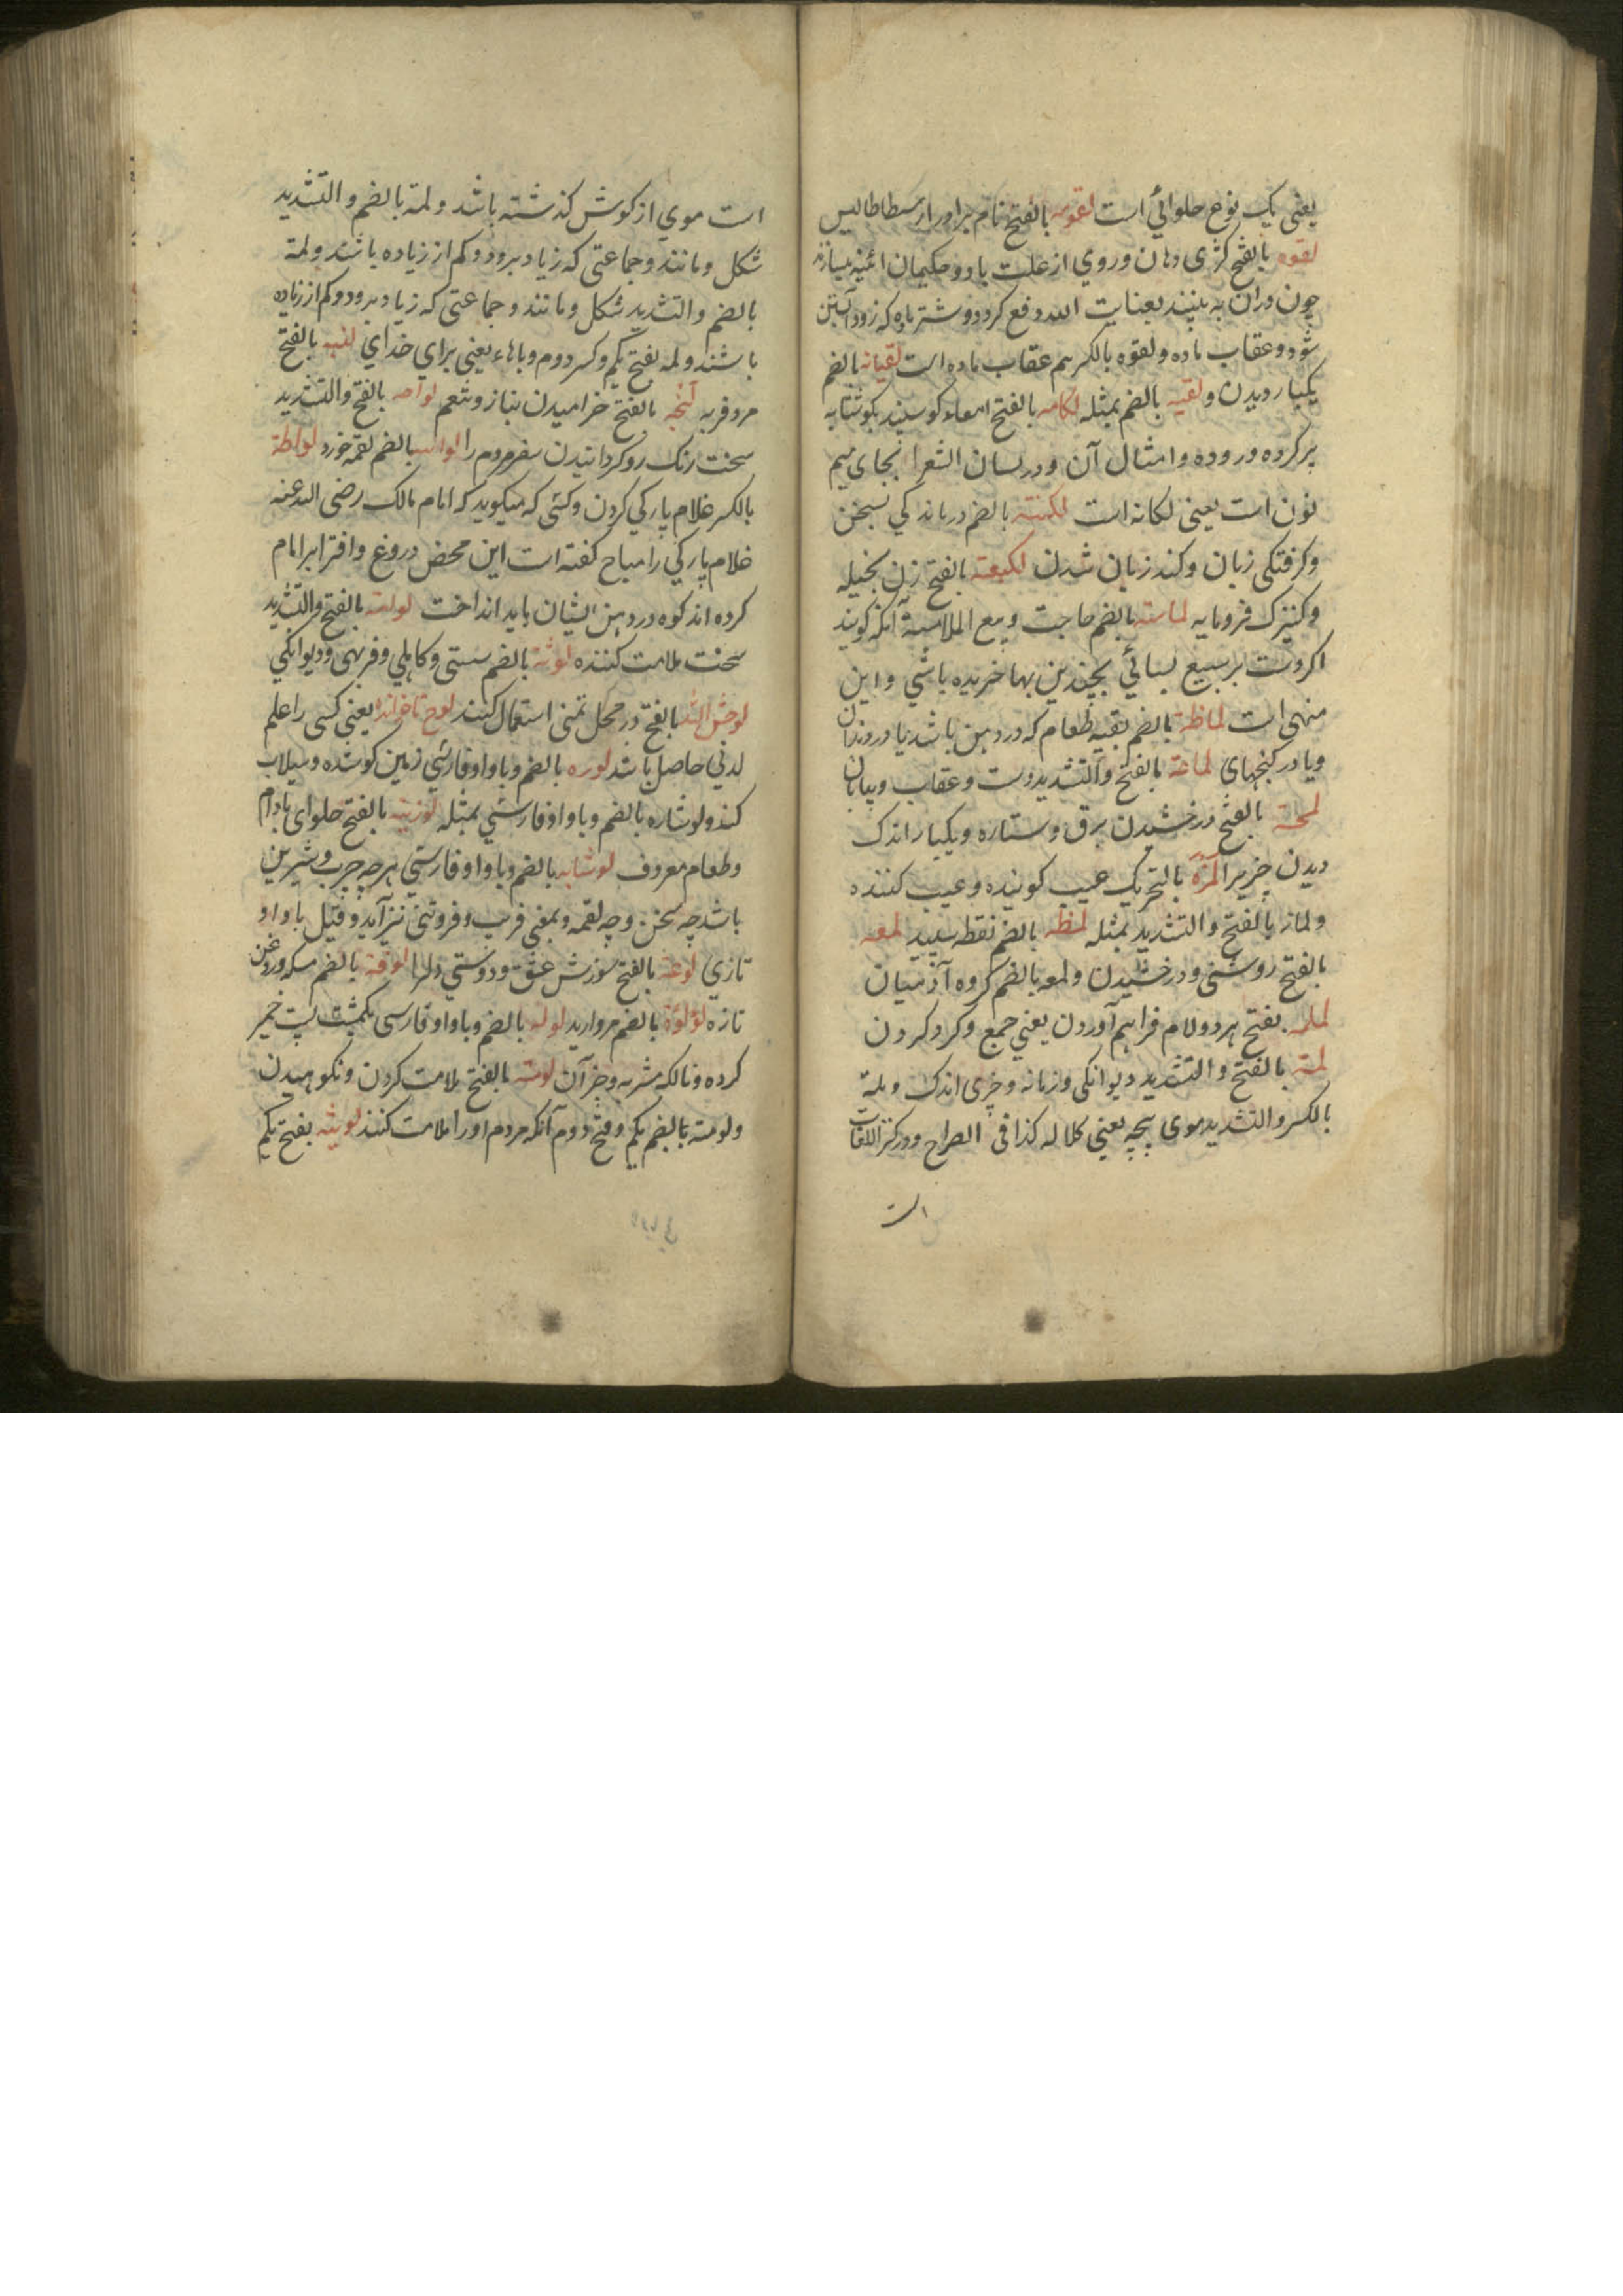 یعنی یک نوع حلوائی است لقومه بالفتح نام برادر ارسطاطالیس
لقوه بالفتح کژی دهان و روی از علت باد و حکیمان ائینه میسازند
چون دران به بینند بعنایت الله دفع کردد و شتر ماده که زود آبستن
شود و عقاب ماده و لقوه بالکسر هم عقاب ماده است لقیانه بالضم
یکبار دیدن و لقیه بالضم بمثله لکامه بالفتح امعاء کوسپند بکوشتابه
پر کرده و روده و امثال آن و در لسان الشعرا بجای میم
نون است یعنی لکانه است لکنته بالضم درماندکی بسخن
و کرفتکی زبان و کند زبان شدن لکیعته بالفتح زن بخیله
و کنیزک فرومایه لماسته بالضم حاجت و بیع الملامسة آنکه کویند
اکر دست بر مبیع بسائی بچندین بها خریده باشی و این
منهی است لماظه بالضم بقیه طعام که در دهن باشد یا در دندان
و یا در کنجهای لماعة بالفتح والتشدید دست و عقاب و بیابان
لمحته بالفتح درخشیدن برق و ستاره و یکبار اندک
دیدن چیزیرا لمزة بالتحریک عیب کوینده و عیب کننده
و لماز بالفتح والتشدید بمثله لمظه بالضم نقطه سپید لمعه
بالفتح روشنی و درخشیدن و لمعه بالضم کروه آدمیان
لملمه بفتح هر دو لام فراهم آوردن یعنی جمع و کرد کردن
لمته بالفتح والتشدید دیوانکی و زمانه و چیزی اندک و لمة
بالکسر والتشدید موی پیچه یعنی کلاله کذا فی الصراح و در کنز اللغات
است
است موی از کوش کذشته باشد و لمة بالضم والتشدید
شکل و مانند و جماعتی که زیاد بر دو و کم از ز زیاده باشند و لمة
بالضم والتشدید شکل و مانند و جماعتی که زیاد بر دو و کم از ز زیاده
باشند و لمه بفتح یکم و کسر دوم و باهاء یعنی برای خدای لنبه بالفتح
مرد فربه لنجه بالفتح خرامیدن بناز و تنعم لواحه بالفتح والتشدید
سخت رنک رو کردانیدن سفر مردم را لواسه بالضم لقمه خورد لواطة
بالکسر غلام پارکی کردن و کسی که میکوید که امام مالک رضی الله عنه
غلام پارکی را مباح کفته است این محض دروغ و افترا بر امام
کرده اند کوه در دهن ایشان باید انداخت لوامته بالفتح والتشدید
سخت ملامت کننده لوثة بالضم سستی و کاهلی و فربهی و دیوانکی
لوحش الله بالفتح در محل تمنی استعمال کنند لوح ناخوانده یعنی کسی را علم
لدنی حاصل باشد لوره بالضم و باواو فارسی زمین کو شده و سیلاب
کند و لوشاره بالضم و باواو فارسی بمثله لوزینه بالفتح حلوای بادام
و طعام معروف لوشابه بالضم و باواو فارسی هرچه چرب و شیرین
باشد چه سخن و چه لقمه و بمعنی فریب و فروتنی نیز آید و قیل باواو
تازی لوعة بالفتح سوزش عشق و دوستی دل را لوقة بالضم مسکه و روغن
تازه لؤلؤة بالضم مروارید لوله بالضم و باواو فارسی یکمشت پست خمیر
کرده و نالکه مشربه و جز آن لومته بالفتح ملامت کردن و نکوهیدن
و لومته بالضم یکم و فتح دوم آنکه مردم او را ملامت کنند لویثه بفتح یکم